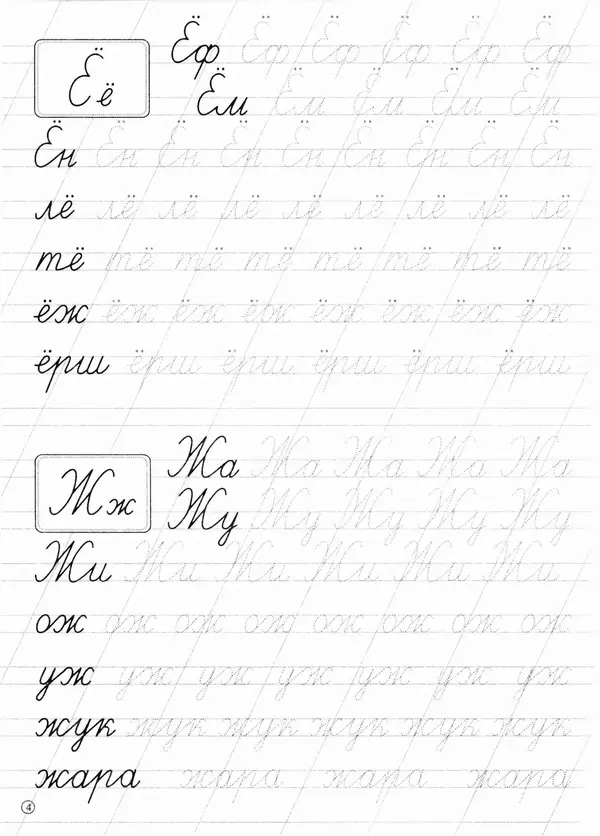 Ёё
Ёф Ёф Ёф Ёф Ёф Ёф
Ём Ём Ём Ём Ём
Ён Ён Ён Ён Ён Ён Ён Ён Ён
лё лё лё лё лё лё лё лё лё
тё тё тё тё тё тё тё тё
ёж ёж ёж ёж ёж ёж ёж ёж
ёрш ёрш ёрш ёрш ёрш ёрш
Жж
Жа Жа Жа Жа Жа
Жу Жу Жу Жу Жу
Жи Жи Жи Жи Жи Жи
ож ож ож ож ож ож ож ож
уж уж уж уж уж уж уж
жук жук жук жук жук жук
жара жара жара жара
4